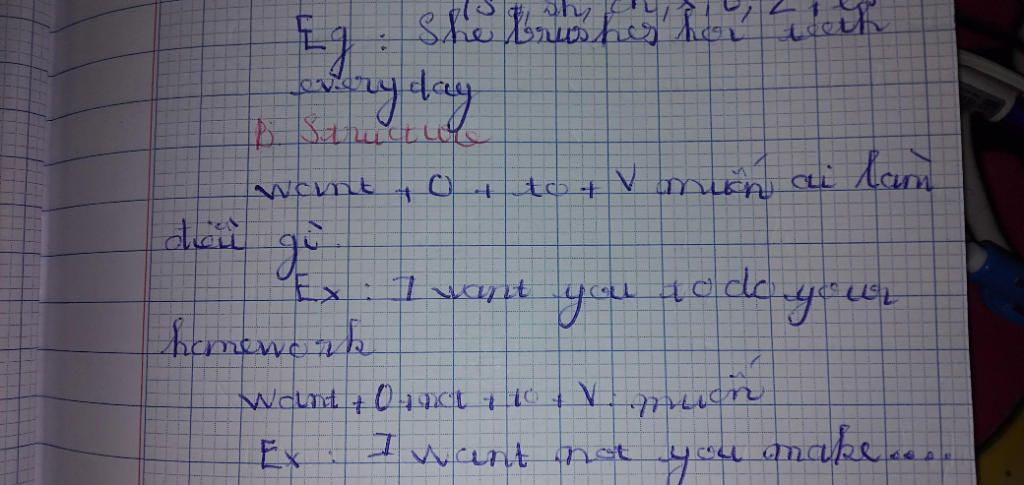 (s, sh, ch, x, o, z,
Eg : She brushes her teeth
everyday
B. Structure
want + O + to + V muốn ai làm
điều gì.
Ex : I want you to do your
homework
Want + O + not + to + V : muốn
Ex : I want not you make....